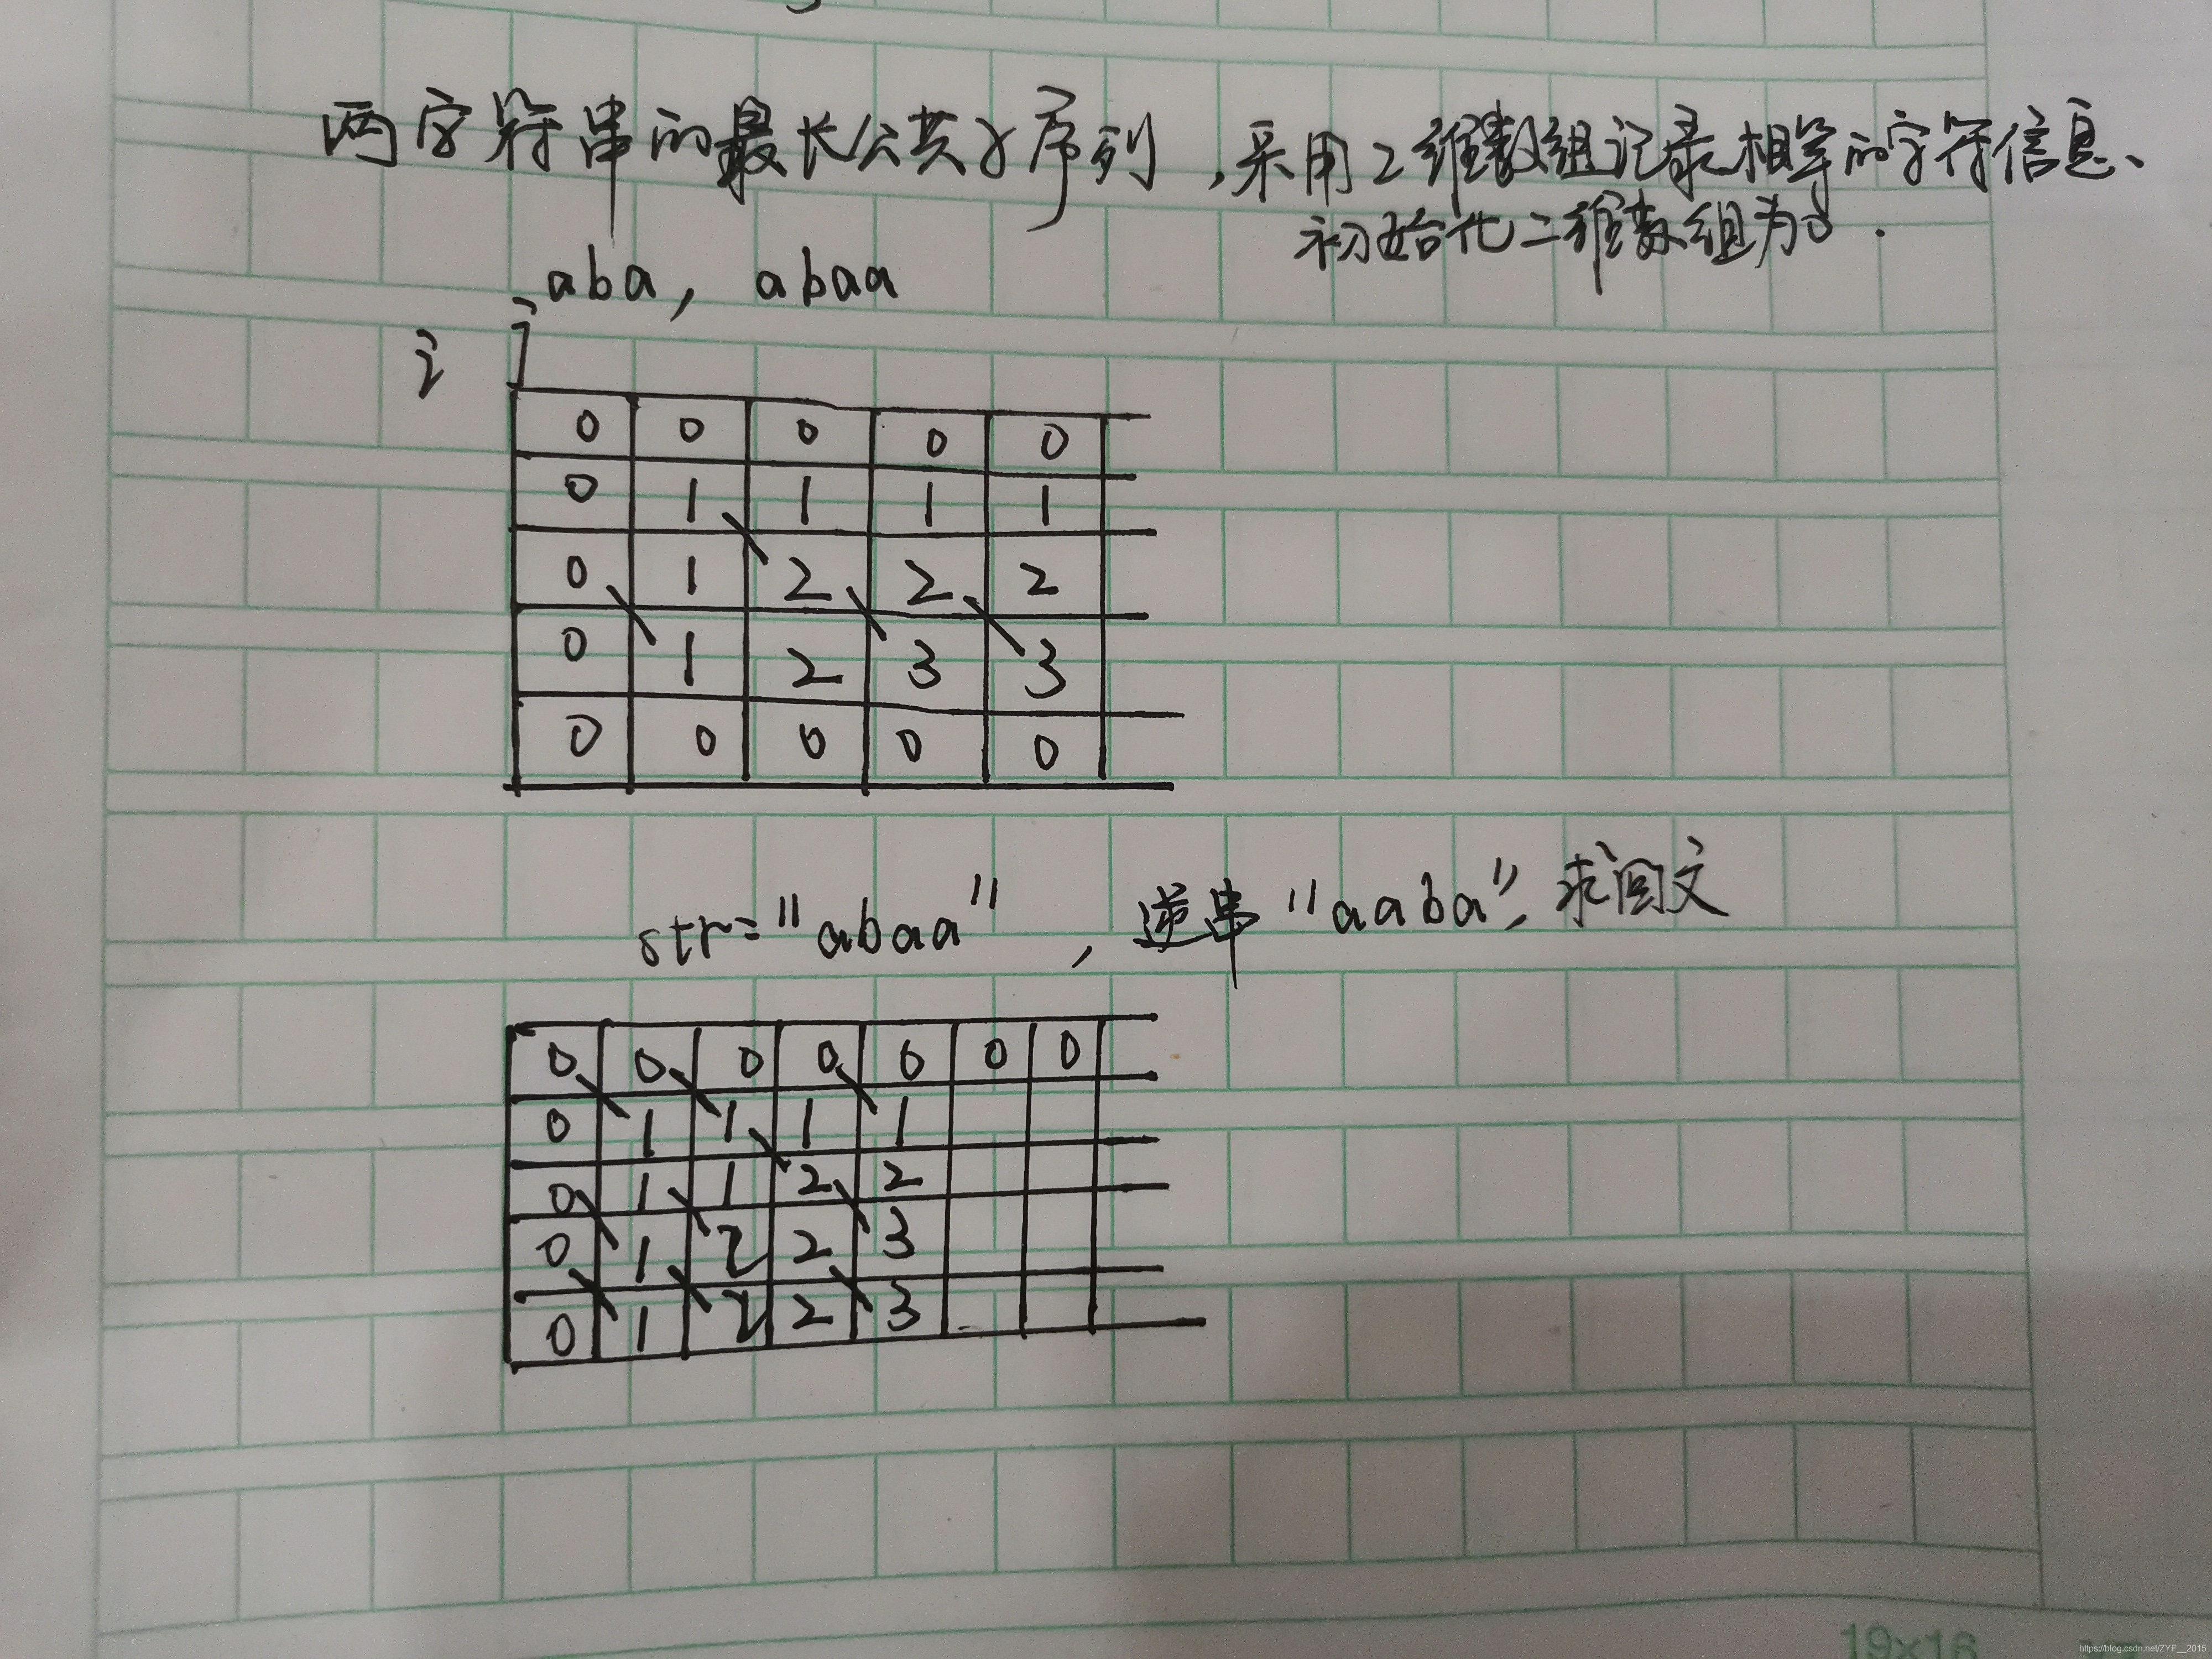 两字符串的最长公共子序列,采用2维数组记录相等的字符信息、
初始化二维数组为0.
aba, abaa
i j
0 0 0 0 0
0 1 1 1 1
0 1 2 2 2
0 1 2 3 3
0 0 0 0 0
str="abaa",逆串"aaba",求回文
0 0 0 0 0 0 0
0 1 1 1 1
0 1 1 2 2
0 1 2 2 3
0 1 2 2 3
19×16
https://blog.csdn.net/ZYF__2015